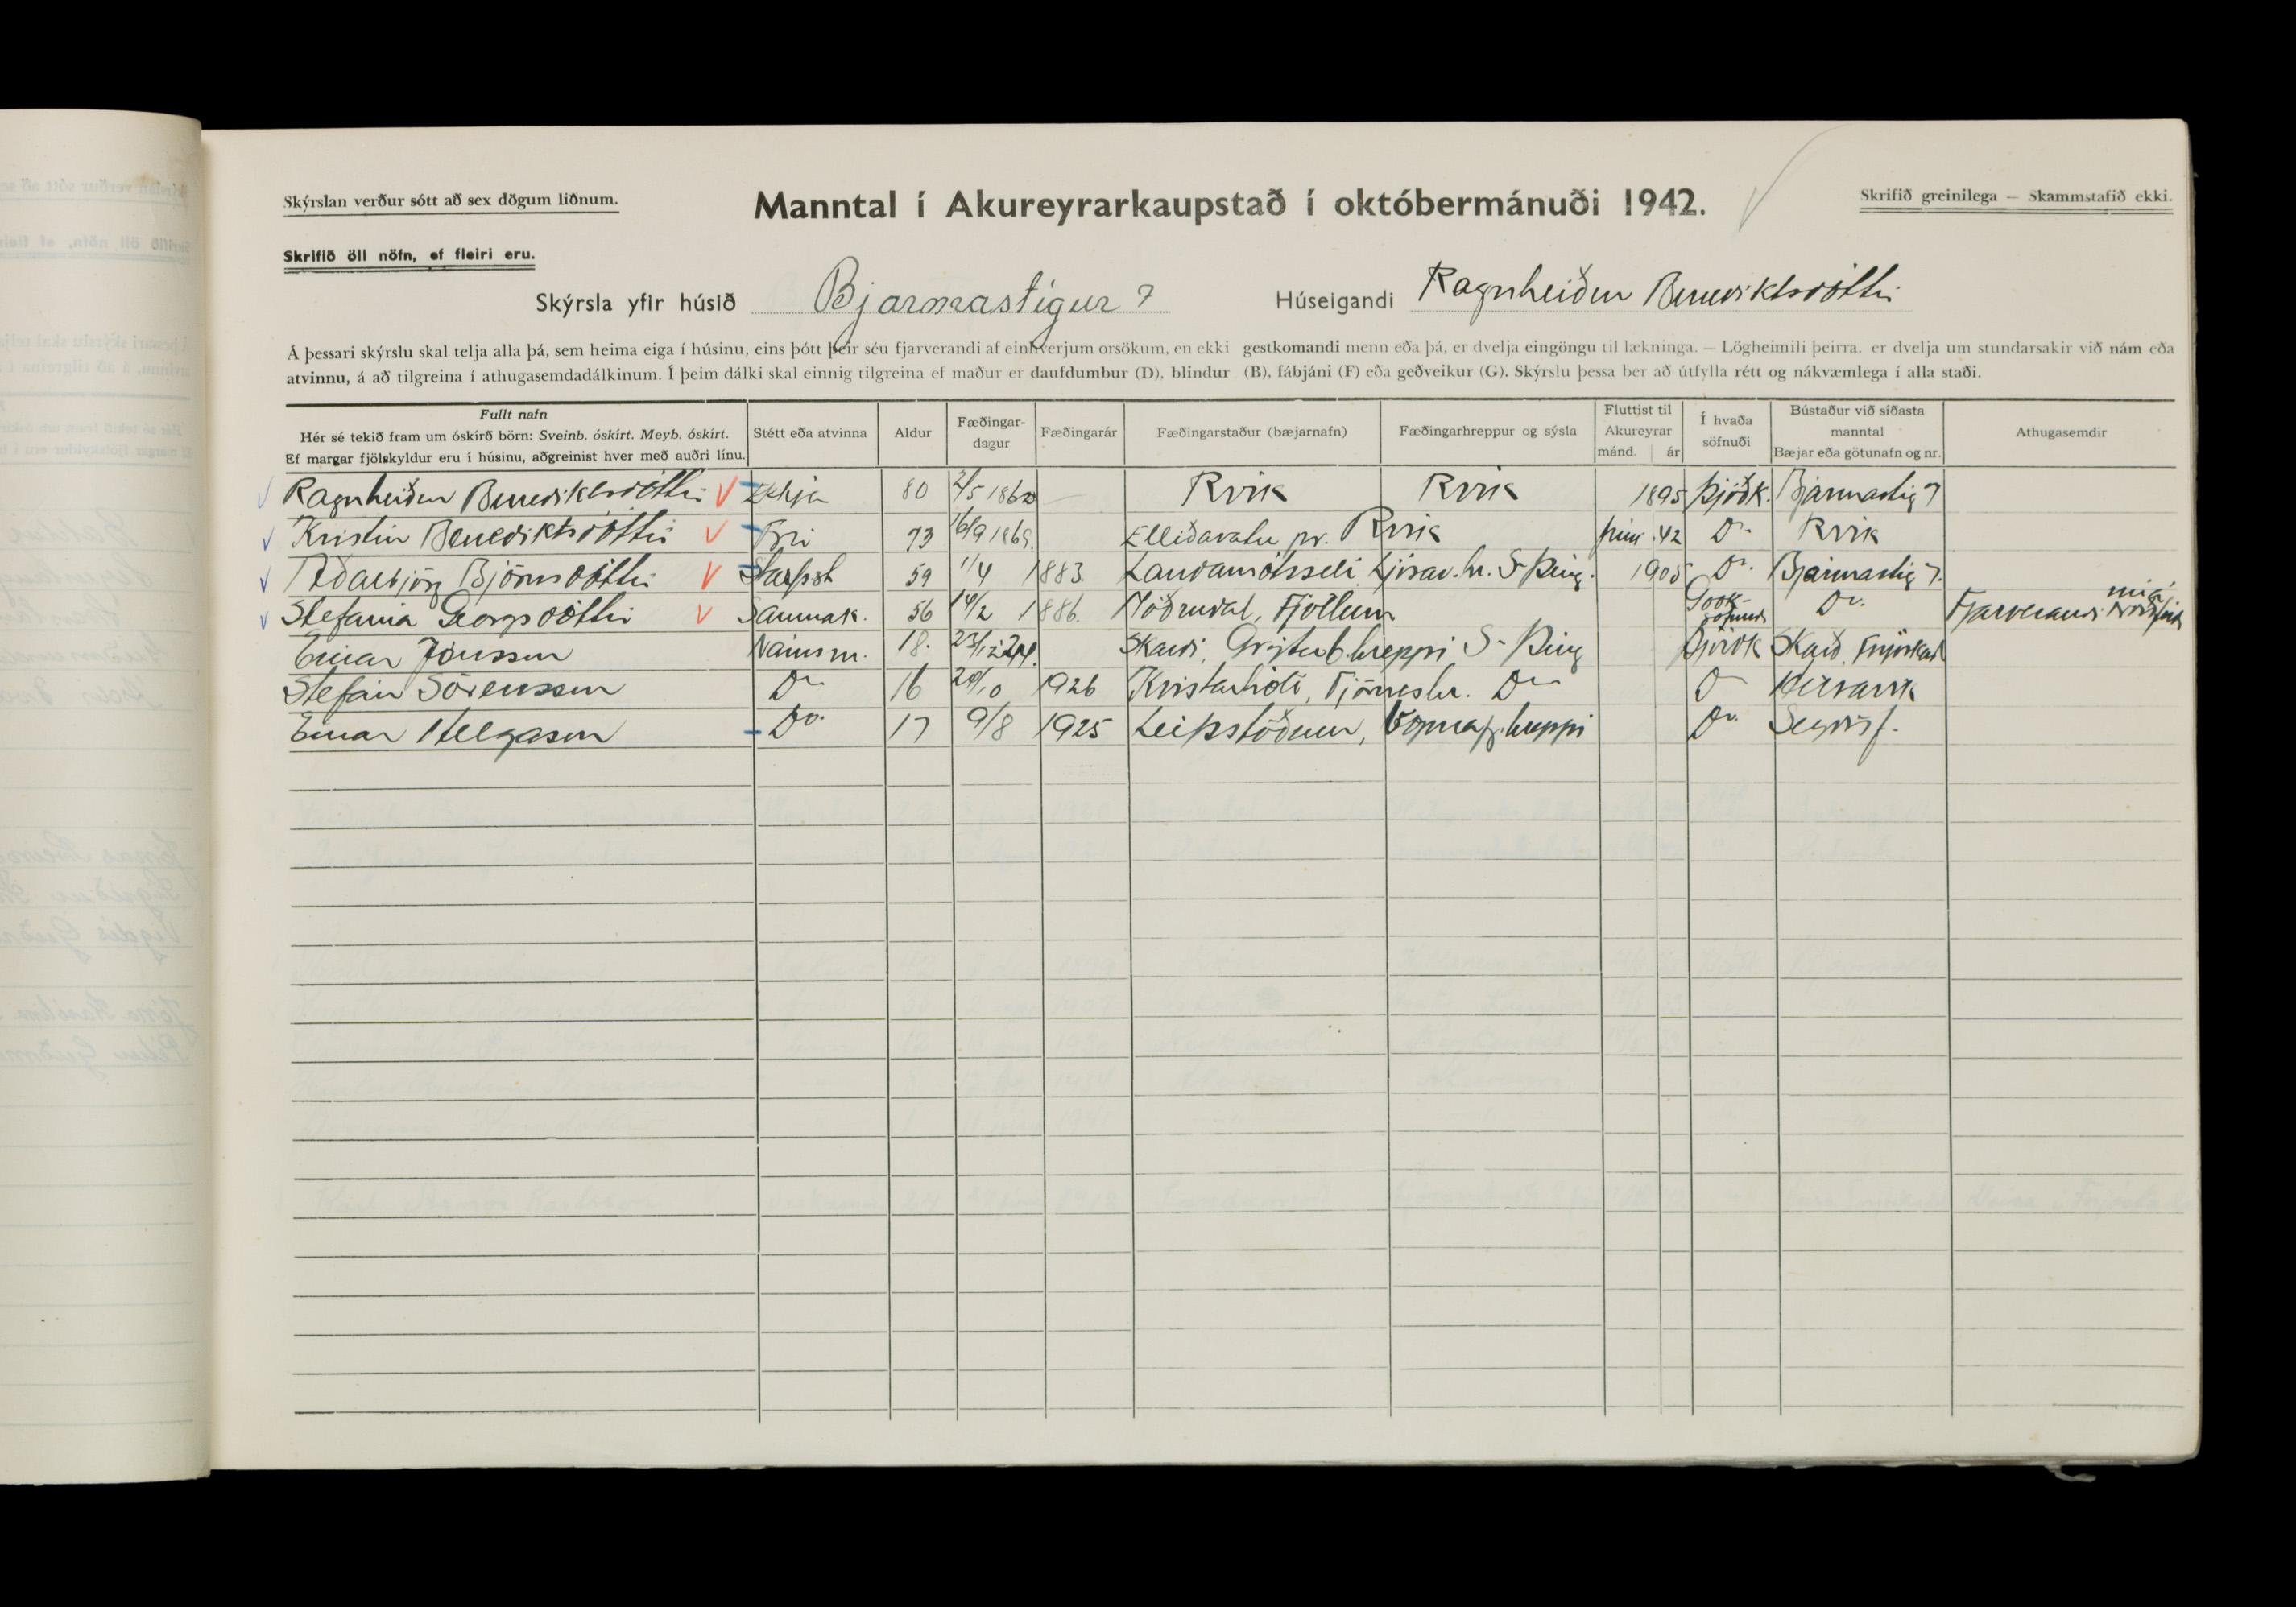 Skýrslan verður sótt að sex dögum liðnum.
Manntal í Akureyrarkaupstað í októbermánuði 1942.
Skrifið greinilega — Skammstafið ekki.
Skrifið öll nöfn, ef fleiri eru.
Skýrsla yfir húsið Bjarmastígur 7 Húseigandi Ragnheiður Benediktsdóttir
Á þessari skýrslu skal telja alla þá, sem heima eiga í húsinu, eins þótt þeir séu fjarverandi af einhverjum orsökum, en ekki gestkomandi menn eða þá, er dvelja eingöngu til lækninga. — Lögheimili þeirra, er dvelja um stundarsakir við nám eða
atvinnu, á að tilgreina í athugasemdadálkinum. Í þeim dálki skal einnig tilgreina ef maður er daufdumbur (D), blindur (B), fábjáni (F) eða geðveikur (G). Skýrslu þessa ber að útfylla rétt og nákvæmlega í alla staði.
Fullt nafn
Hér sé tekið fram um óskírð börn: Sveinb. óskírt. Meyb. óskírt.
Ef margar fjölskyldur eru í húsinu, aðgreinist hver með auðri línu.
Stétt eða atvinna
Aldur
Fæðingar-
dagur
Fæðingarár
Fæðingarstaður (bæjarnafn)
Fæðingarhreppur og sýsla
Fluttist til
Akureyrar
mánd. ár
Í hvaða
söfnuði
Bústaður við síðasta
manntal
Bæjar eða götunafn og nr.
Athugasemdir
Ragnheiður Benediktsdóttir Ekkja 80 2/5 1862 Rvík Rvík 1895 Þjóðk. Bjarmastíg 7
Kristín Benediktsdóttir Frú 73 16/9 1869. Elliðavatni pr. Rvík júní .42 Do Rvík
Aðalbjörg Björnsdóttir Starfsst 59 1/4 1883. Landamótsseli Ljósav.hr. S-Þing. 1905 Do. Bjarmastíg 7.
Stefanía Georgsdóttir Saumak. 56 14/2 1886. Möðrudal, Fjöllum Do. Fjarverandi
Einar Jónsson Námsm. 18. Skarði, Grýtub.hreppi S-Þing Þjóðk Skarð
Stefán Sörensson Do 16 20/10 1926 Kvistarhóli, Tjörneshr. Do Do Húsavík
Einar Helgason Do. 17 9/8 1925 Vopnafj.hreppi Do. Seyðisf.